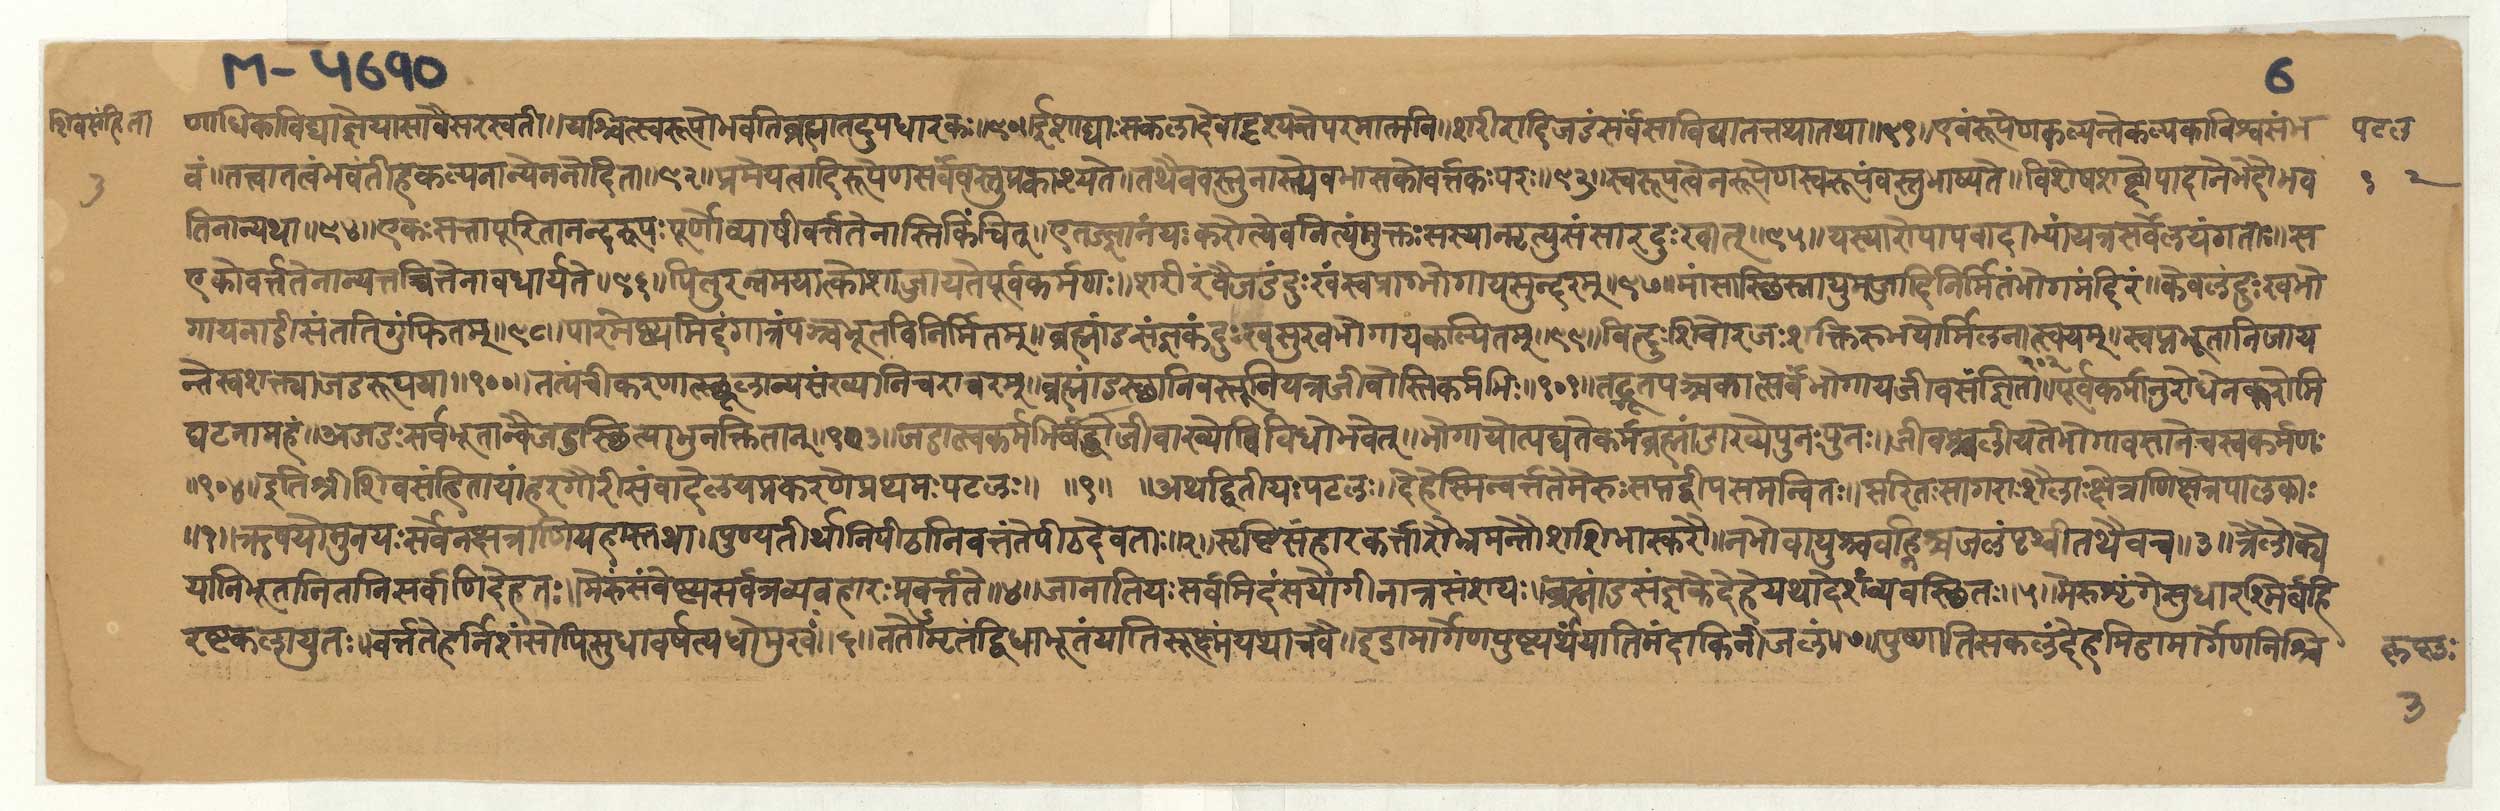 M-५६१०
6
शिवसंहिता
णाधिकाविद्याज्ञेयासावैसरस्वती॥यश्चित्स्वरूपोभवतिब्रह्मातदुपधारकः॥९०॥ईशाद्याःसकलादेवादृश्यन्तेपरमात्मनि॥शरीरादिजडंसर्वंसाविद्यातत्तथातथा॥९१॥एवंरूपेणकल्प्यन्तेकल्पकाविश्वसंभ
पटल
वं॥तत्त्वातत्त्वंभवंतीहकल्पनान्येननोदिता॥९२॥प्रमेयत्वादिरूपेणसर्वंवस्तुप्रकाश्यते॥तथैववस्तुनास्त्येवभासकोवर्त्तकःपरः॥९३॥स्वरूपत्वेनरूपेणस्वरूपंवस्तुभाष्यते॥विशेषशब्दोपादानेभेदोभव
३
१ २
तिनान्यथा॥९४॥एकःसत्तापूरितानन्दरूपःपूर्णोव्यापीवर्त्ततेनास्तिकिंचित्॥एतज्ज्ञानंयःकरोत्येवनित्यंमुक्तःसस्यान्मृत्युसंसारदुःखात्॥९५॥यस्यारोपापवादाभ्यांयत्रसर्वेलयंगताः॥स
एकोवर्त्ततेनान्यत्तच्चित्तेनावधार्यते॥९६॥पितुरन्नमयात्कोशाज्जायतेपूर्वकर्मणः॥शरीरंवैजडंदुःखंस्वप्राग्भोगायसुन्दरम्॥९७॥मांसास्थिस्नायुमज्जादिनिर्मितंभोगमंदिरं॥केवलंदुःखभो
गायनाडीसंततिगुंफितम्॥९८॥पारमेष्ठ्यमिदंगात्रंपञ्चभूतविनिर्मितम्॥ब्रह्मांडसंज्ञकंदुःखसुखभोगायकल्पितम्॥९९॥बिन्दुःशिवोरजःशक्तिरुभयोर्मिलनात्स्वयम्॥स्वप्नभूतानिजाय
न्तेस्वशक्त्याजडरूपया॥१००॥तत्पंचीकरणात्स्थूलान्यसंख्यानिचराचरम्॥ब्रह्मांडस्थानिवस्तूनियत्रजीवोस्तिकर्मभिः॥१०१॥तद्भूतपञ्चकात्सर्वंभोगायजीवसंज्ञिता॥१०२पूर्वकर्मानुरोधेनकरोमि
घटनामहं॥अजडःसर्वभूतान्वैजडस्थित्याभुनक्तितान्॥१०३॥जडात्स्वकर्मभिर्बद्धोजीवाख्योविविधोभवेत्॥भोगायोत्पद्यतेकर्मब्रह्मांडाख्येपुनःपुनः॥जीवश्चलीयतेभोगावसानेचस्वकर्मणः
॥१०४॥इतिश्रीशिवसंहितायांहरगौरीसंवादेलयप्रकरणेप्रथमःपटलः॥ ॥१॥ ॥अथद्वितीयःपटलः॥देहेस्मिन्वर्त्ततेमेरुःसप्तद्वीपसमन्वितः॥सरितःसागराःशैलाःक्षेत्राणिक्षेत्रपालकाः
॥१॥ऋषयोमुनयःसर्वेनक्षत्राणिग्रहास्तथा॥पुण्यतीर्थानिपीठानिवर्त्तंतेपीठदेवताः॥२॥सृष्टिसंहारकर्त्तारौभ्रमन्तौशशिभास्करौ॥नभोवायुश्चवह्निश्चजलंपृथ्वीतथैवच॥३॥त्रैलोक्ये
यानिभूतानितानिसर्वाणिदेहतः॥मेरुंसंवेष्ट्यसर्वत्रव्यवहारःप्रवर्त्तते॥४॥जानातियःसर्वमिदंसयोगीनात्रसंशयः॥ब्रह्मांडसंज्ञकेदेहेयथादेशंव्यवस्थितः॥५॥मेरुशृंगेसुधारश्मिर्बहि
रष्टकलायुतः॥वर्त्ततेहर्निशंसोपिसुधावर्षत्यधोमुखं॥६॥ततोमृतंद्विधाभूतंयातिसूक्ष्मंयथाचवै॥इडामार्गेणपुष्ट्यर्थंयातिमंदाकिनीजलं॥७॥पुष्णातिसकलंदेहमिडामार्गेणनिश्चि
३